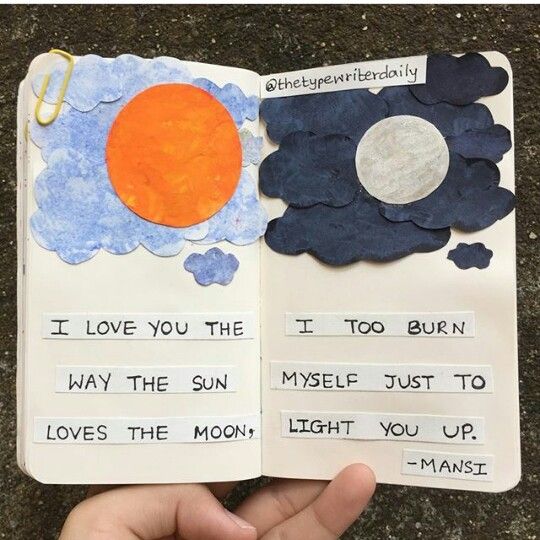 @thetypewriterdaily
I LOVE YOU THE
WAY THE SUN
LOVES THE MOON,
I TOO BURN
MYSELF JUST TO
LIGHT YOU UP.
-MANSI